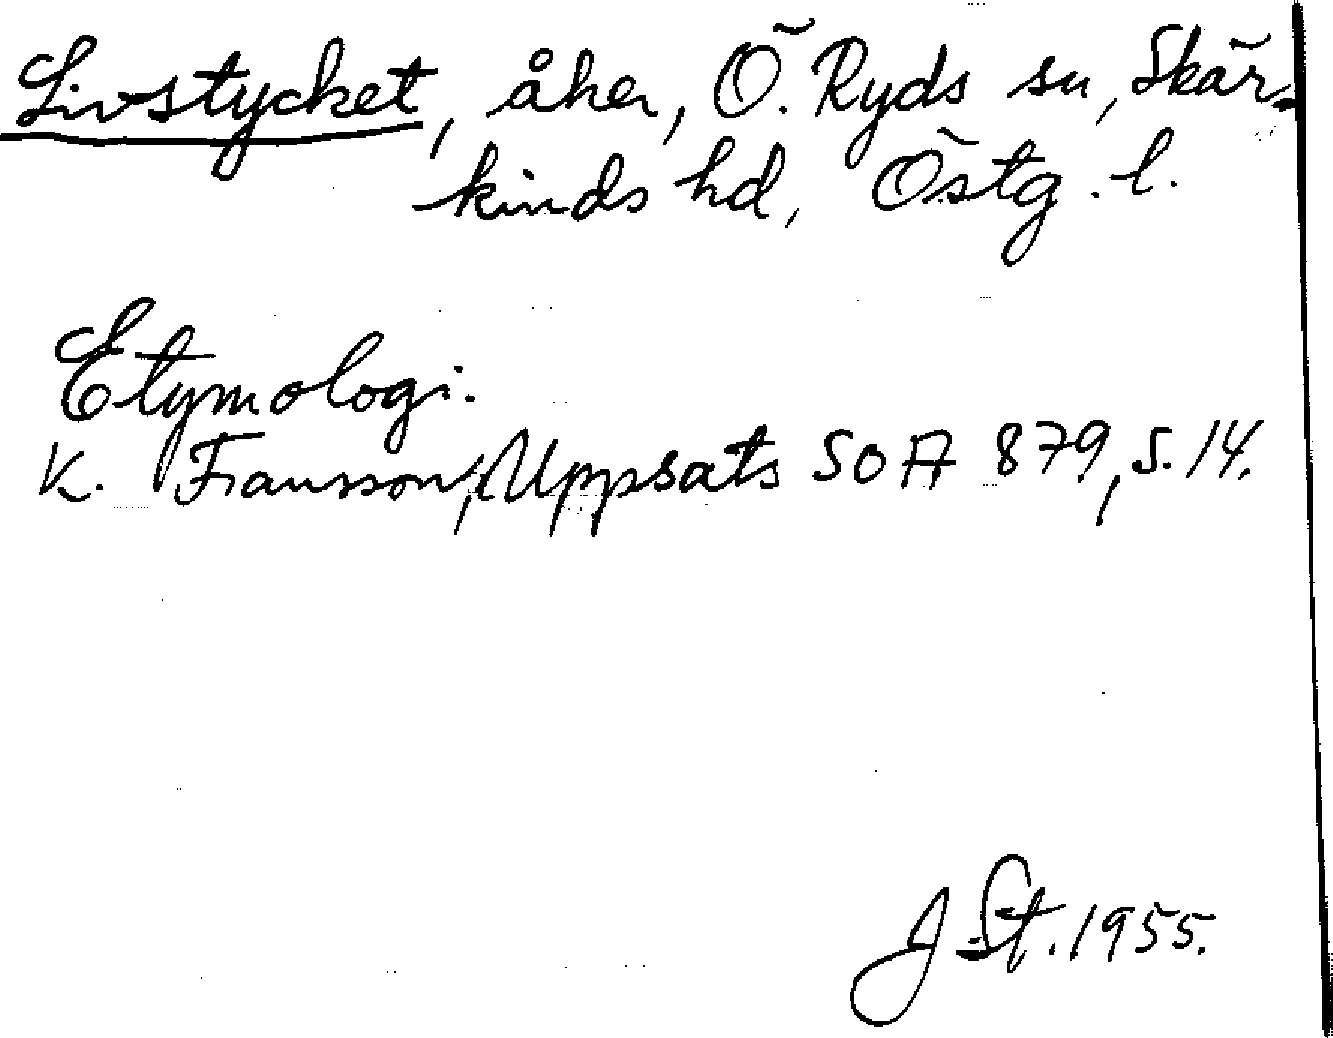 Livstycket, åker, Ö. Ryds sn, Skär-
kinds hd, Östg. l.
Etymologi.
K. Fransson, Uppsats SOA 879, s. 14.
J St. 1955.